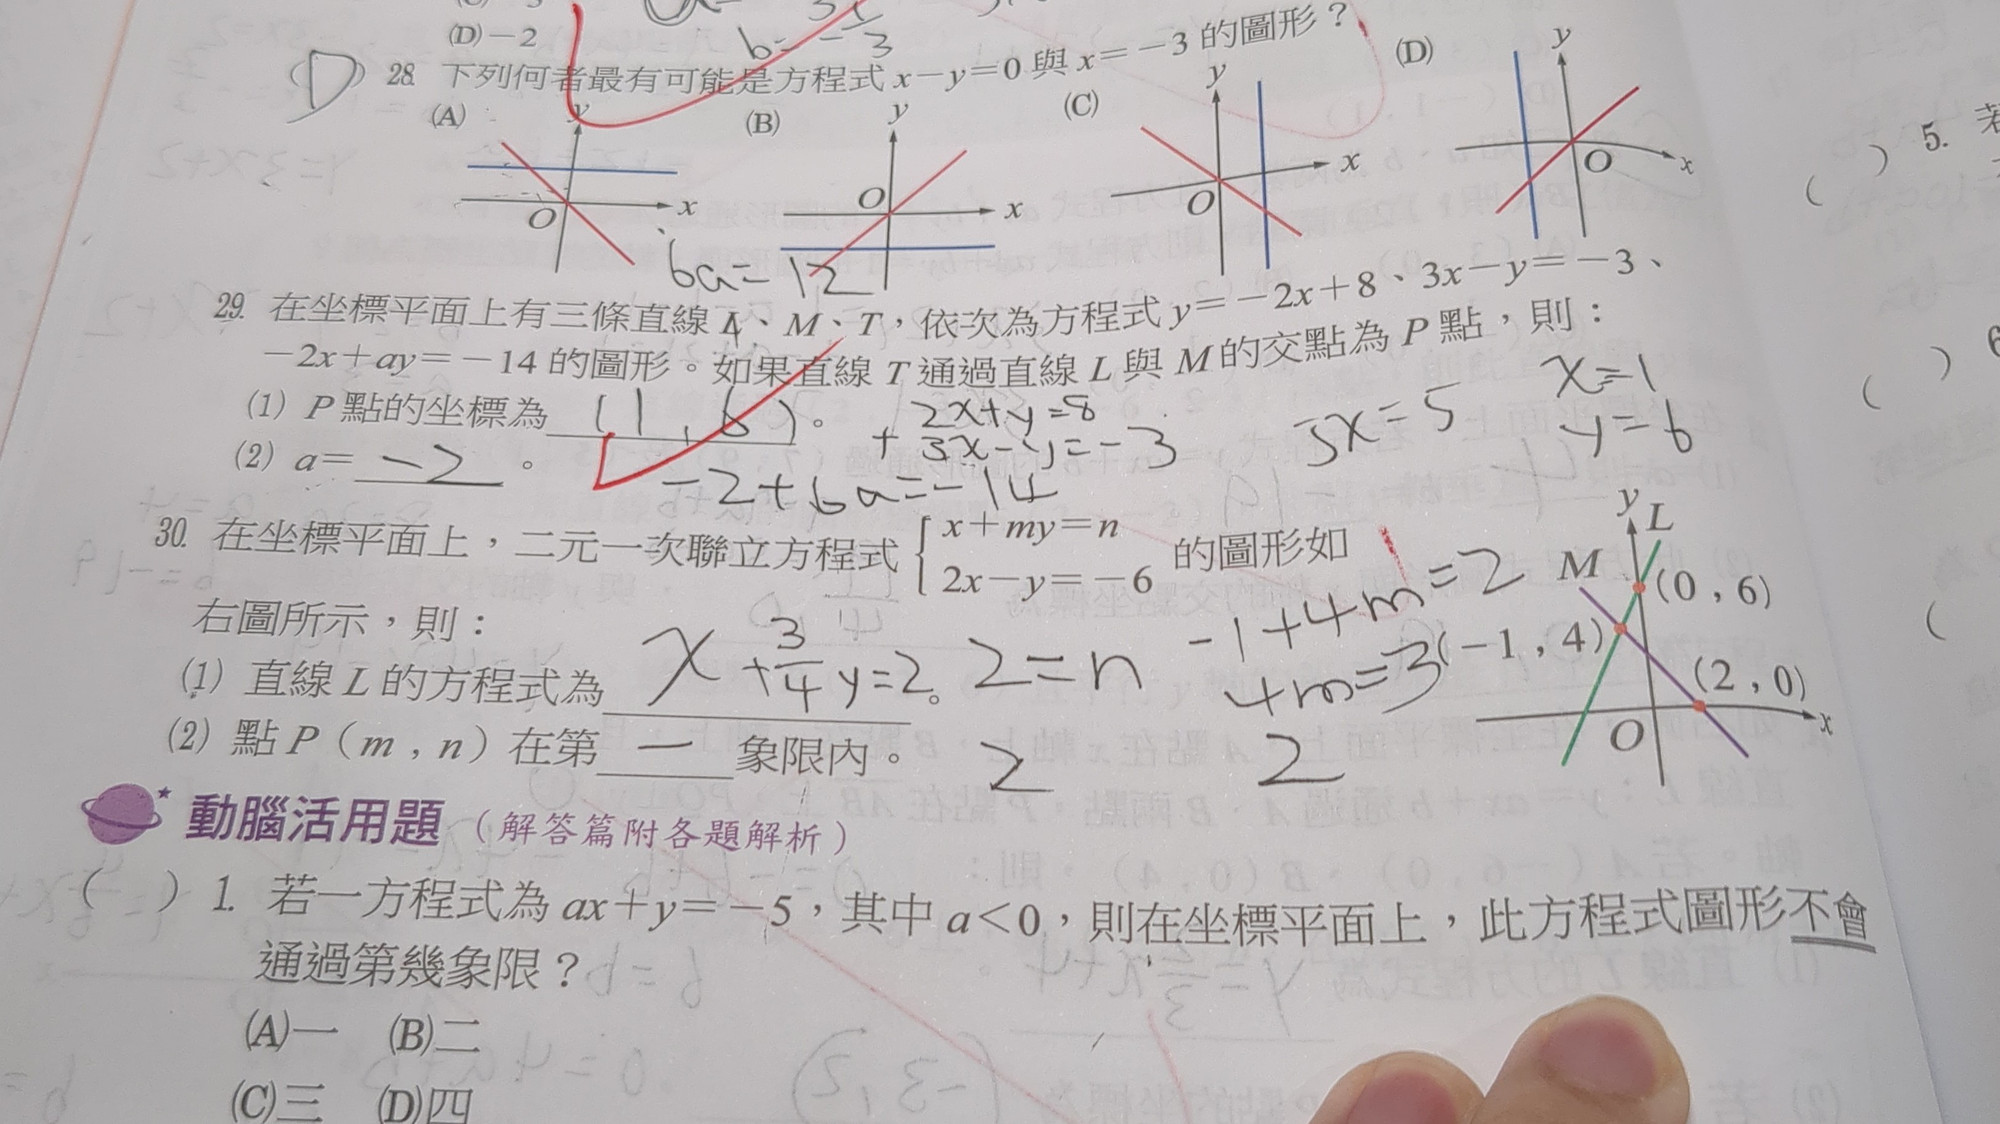 (D)－2
b=-
(D) 28. 下列何者最有可能是方程式 x－y＝0 與 x＝－3 的圖形？
(A) (B) (C) (D)
y y y y
O x O x O x O x
6a=12
29. 在坐標平面上有三條直線 L、M、T，依次為方程式 y＝－2x＋8、3x－y＝－3、
－2x＋ay＝－14 的圖形。如果直線 T 通過直線 L 與 M 的交點為 P 點，則：
(1) P 點的坐標為 (1,6)。
(2) a＝ -2 。
2x+y=8
+ 3x-y=-3
5x=5
x=1
y=6
-2+6a=-14
30. 在坐標平面上，二元一次聯立方程式 x＋my＝n 的圖形如
2x－y＝－6
右圖所示，則：
(1) 直線 L 的方程式為 x+3/4y=2。
(2) 點 P（m，n）在第 一 象限內。
2=n
-1+4m=2
4m=3
2
2
y L
M
(0，6)
(－1，4)
(2，0)
O x
動腦活用題（解答篇附各題解析）
( ) 1. 若一方程式為 ax＋y＝－5，其中 a＜0，則在坐標平面上，此方程式圖形不會
通過第幾象限？
(A)一 (B)二
(C)三 (D)四
( ) 5. 若
( ) 6
(